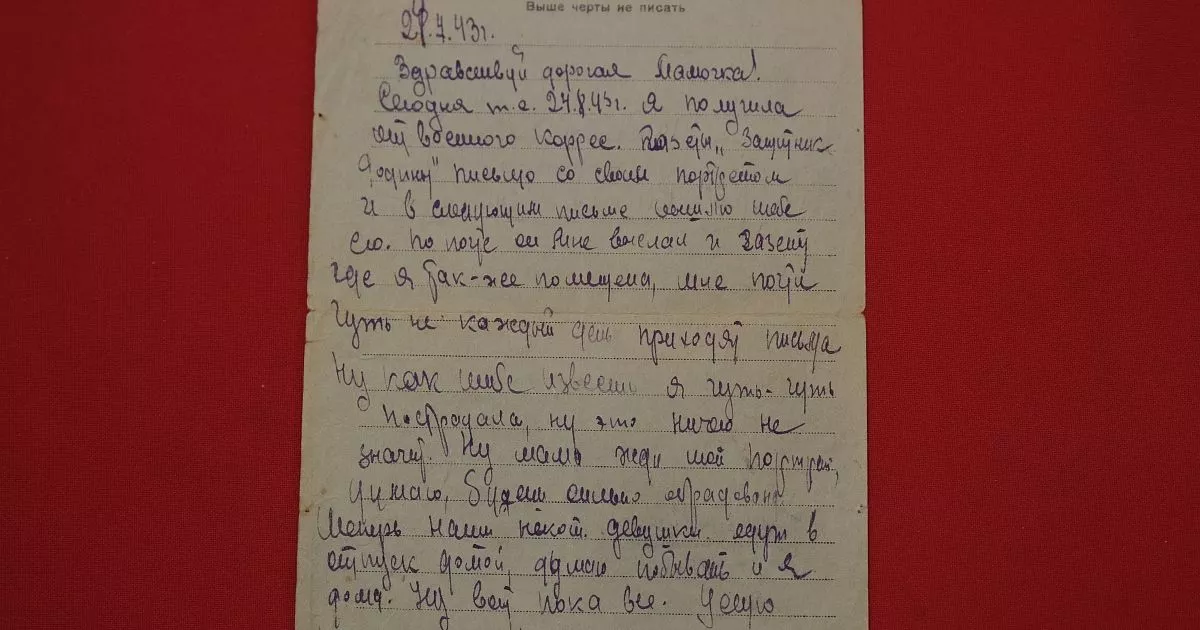 Выше черты не писать
27.7.43г.
Здравствуй дорогая Мамочка!
Сегодня т.е. 27.8.43г. я получила
от военного коррес. газеты „Защитник
Родины" письмо со своим портретом
и в следующим письме вышлю тебе
его. По почте он мне выслал и газету
где я так-же помещена, мне почти
чуть не каждый день приходят письма
Ну как тебе известно я чуть-чуть
пострадала, ну это ничего не
значит. Ну мама жди мой портрет,
думаю, будеш сильно обрадована
Теперь наши некот. девушки едут в
отпуск домой, думаю побывать и я
дома. Ну вот пока все. Целую